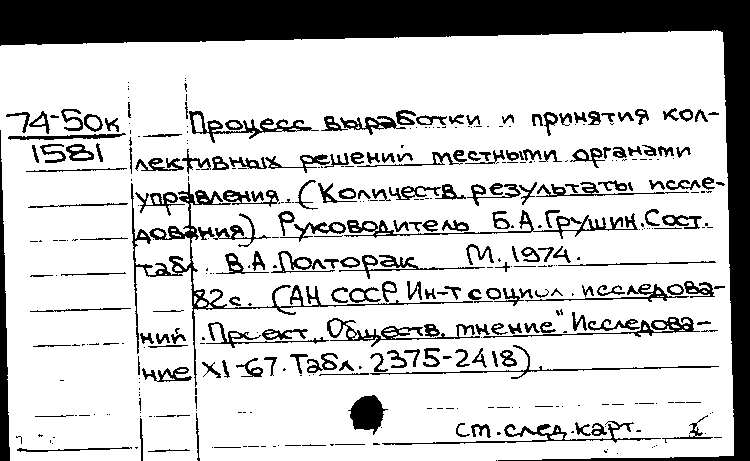 74-50к
1581
Процесс выработки и принятия кол-
лективных решений местными органами
управления. (Количеств. результаты иссле-
дования). Руководитель Б.А.Грушин. Сост.
табл. В.А.Полторак М., 1974.
82с. (АН СССР. Ин-т социол. исследова-
ний. Проект „Обществ. мнение". Исследова-
ние XI-67. Табл. 2375-2418).
см. след. карт.